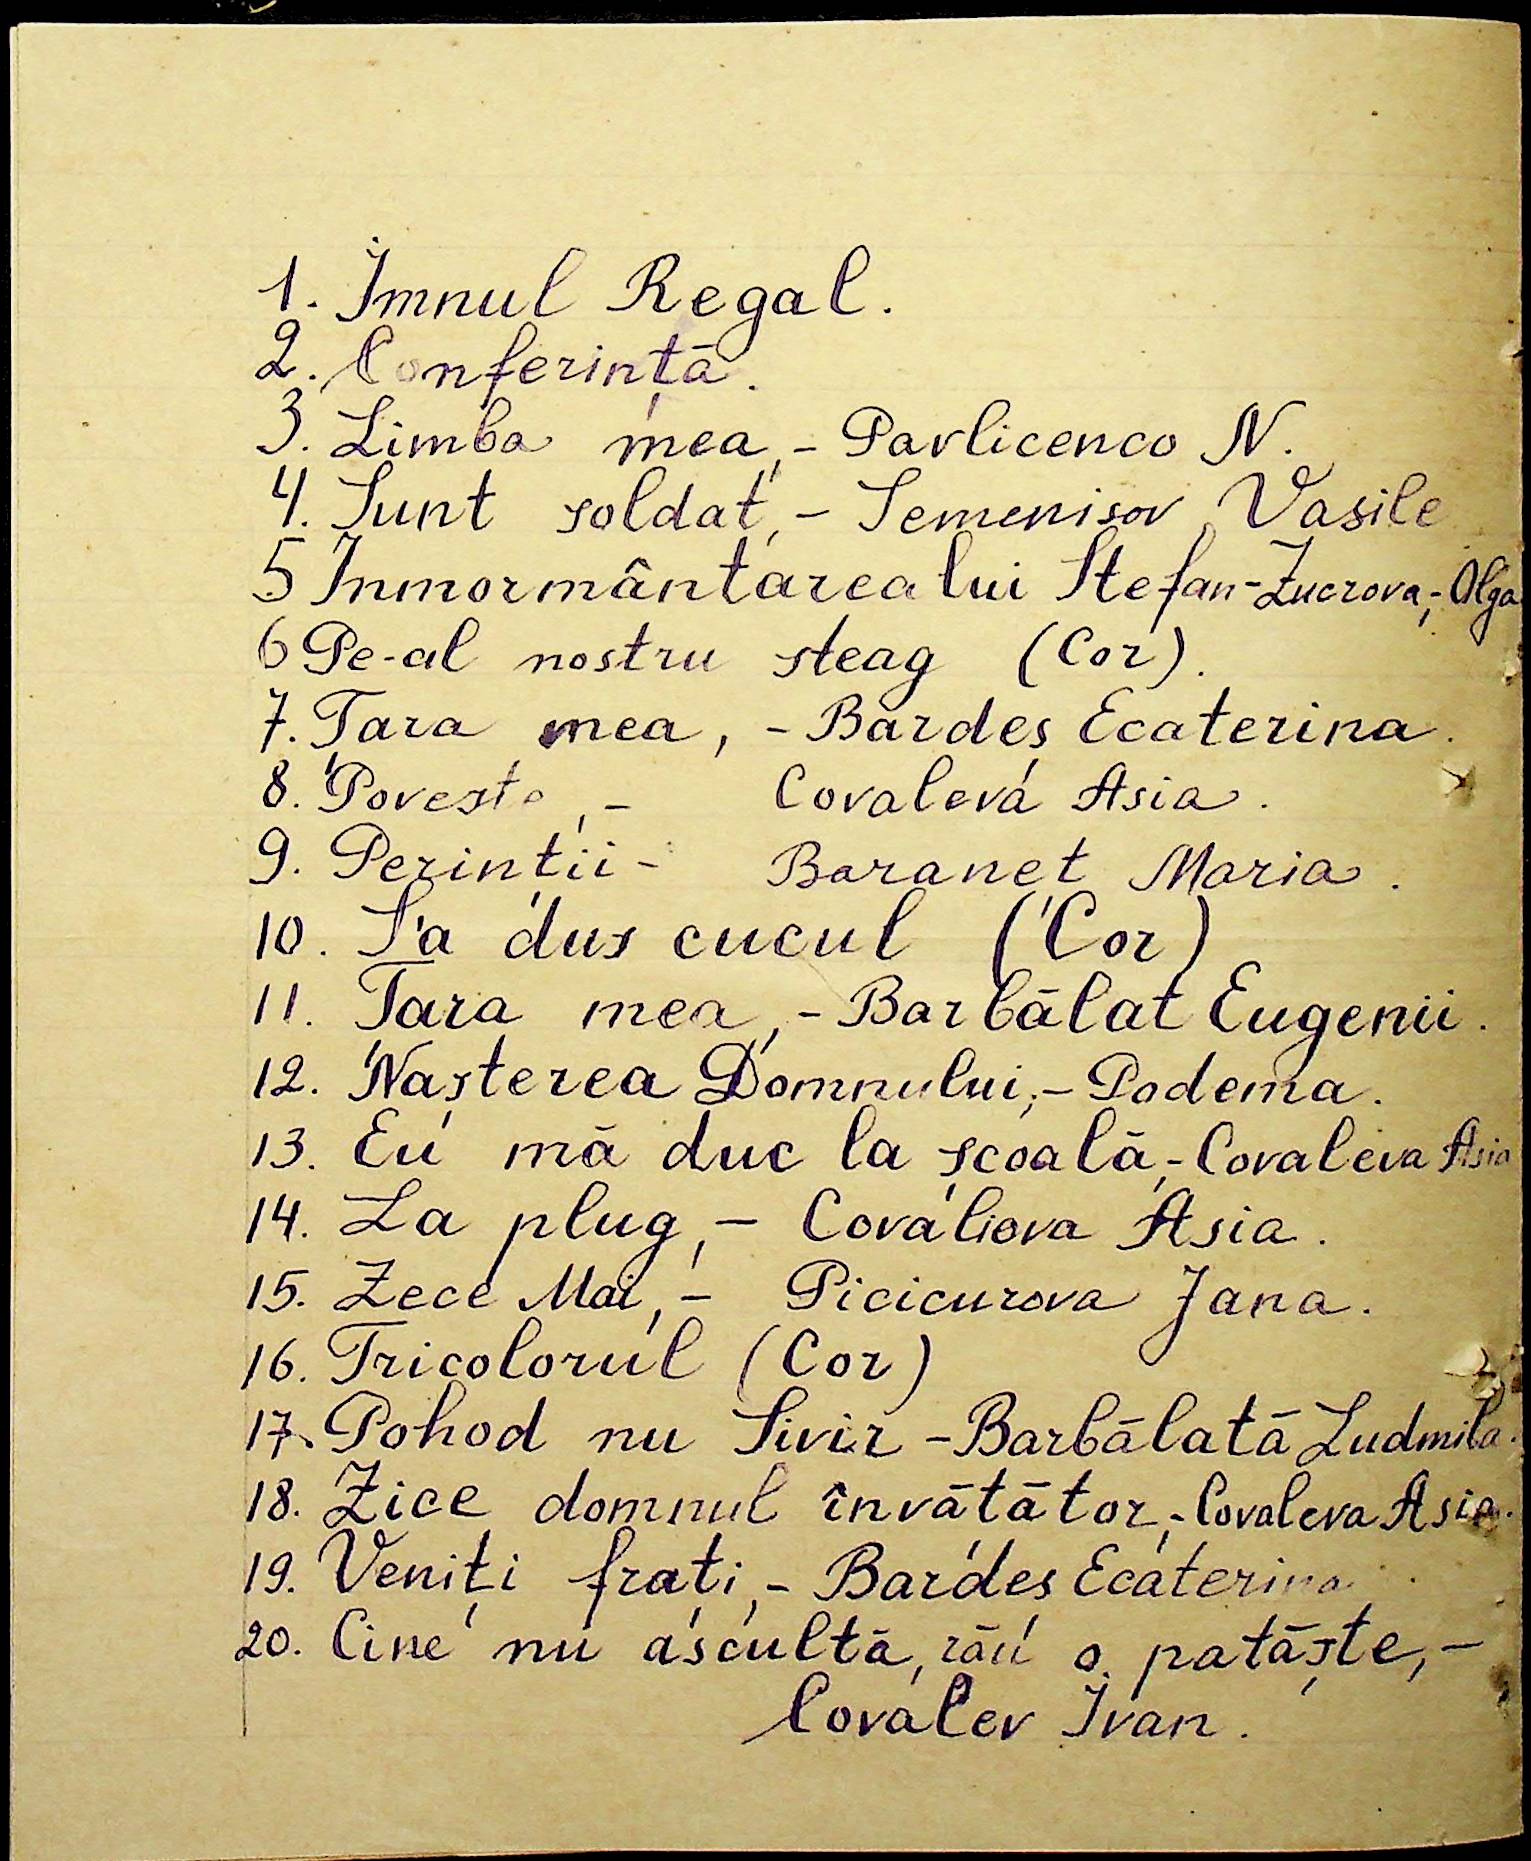 1. Imnul Regal.
2. Conferință.
3. Limba mea, - Pavlicenco N.
4. Sunt soldat, - Semenisov Vasile
5 Inmormântarea lui Stefan - Zucrova, - Olga
6 Pe-al nostru steag (Cor).
7. Țara mea, - Bardeș Ecaterina.
8. Poveste, - Covaleva Asia.
9. Perinții - Baranet Maria.
10. S'a dus cucul (Cor)
11. Țara mea, - Barbālat Eugenii.
12. Nașterea Domnului, - Podema.
13. Eu mā duc la școalā, - Covaleva Asia
14. La plug, - Covaliova Asia.
15. Zece Mai, - Picicurova Jana.
16. Tricolorul (Cor)
17. Pohod nu Sivir - Barbālatā Ludmila.
18. Zice domnul învātātor, - Covaleva Asia.
19. Veniți frați, - Bardes Ecaterina.
20. Cine nu ascultā, rāu o patāște, -
Covalev Ivan.